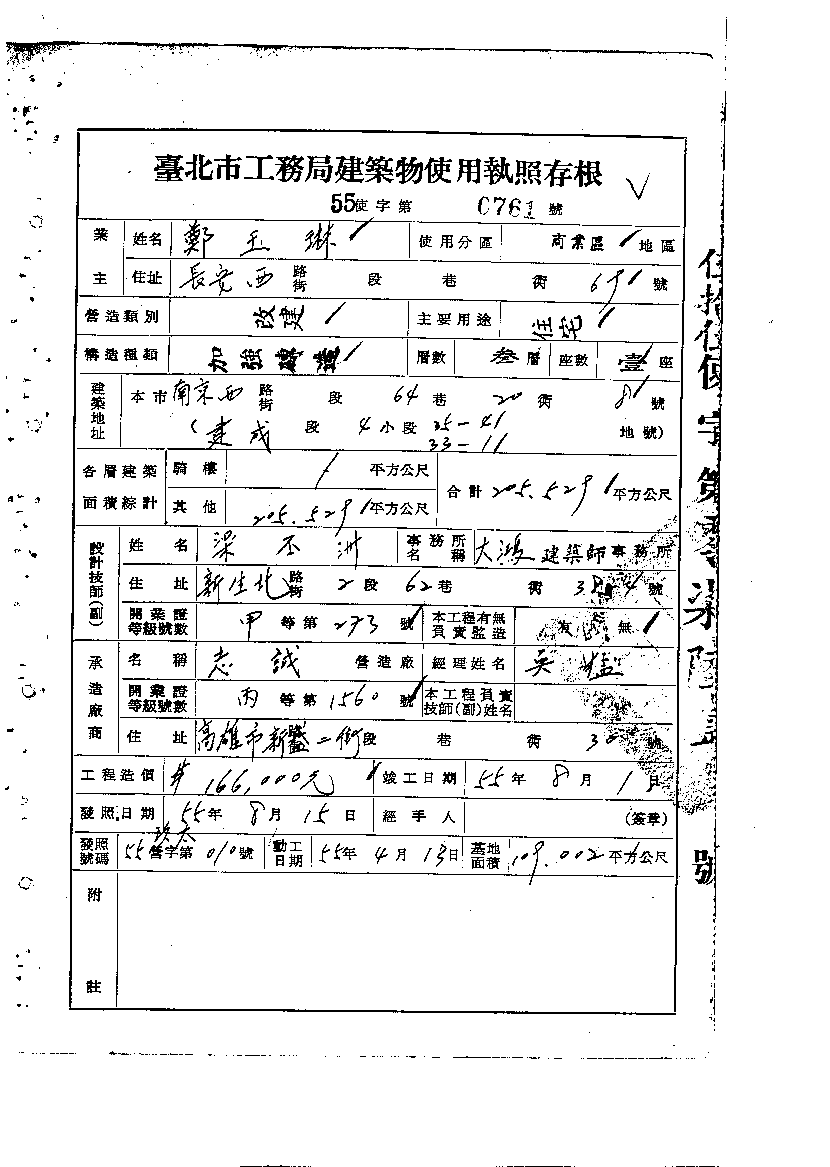 臺北市工務局建築物使用執照存根
55使字第 0761 號
業主 姓名 鄭玉琳 使用分區 商業區 地區
住址 長安西 路街 段 巷 街 69 號
營造類別 改建 主要用途 住宅
構造種類 加強磚造 層數 叁層 座數 壹座
建築地址 本市南京西 路街 段 64巷 20街 8 號
(建成 段 4小段 35-41 33-11 地號)
各層建築面積綜計 騎樓 平方公尺 合計 205.529 平方公尺
其他 205.529 平方公尺
設計技師(副) 姓名 梁 洲 事務所名稱 大鴻建築師事務所
住址 新生北 路街 2段 62巷 街 號
開業證等級號數 甲等第 273 號 本工程有無負責監造 有 無
承造廠商 名稱 志誠 營造廠 經理姓名 吳
開業證等級號數 丙等第 1560 號 本工程負責技師(副)姓名
住址 高雄市新 二街 段 巷 街 30 號
工程造價 166,000元 竣工日期 55年8月1日
發照日期 55年8月15日 經手人 (簽章)
發照號碼 55 營字第 010 號 動工日期 55年4月13日 基地面積 109.002 平方公尺
附註
伍拾伍使字第零柒陸壹號